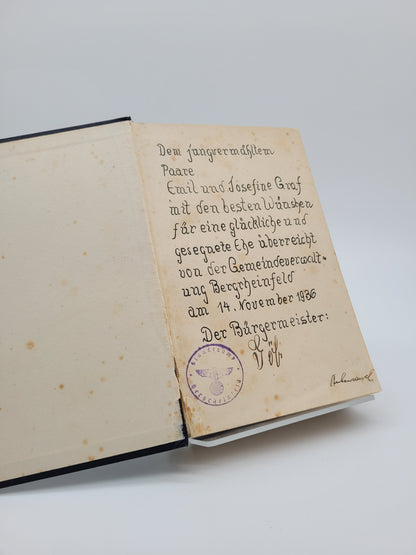 Dem jungvermähltem
Paare
Emil und Josefine Graf
mit den besten Wünschen
für eine glückliche und
gesegnete Ehe überreicht
von der Gemeindeverwalt-
ung Bergrheinfeld
am 14. November 1936
Der Bürgermeister:
Standesamt
Bergrheinfeld